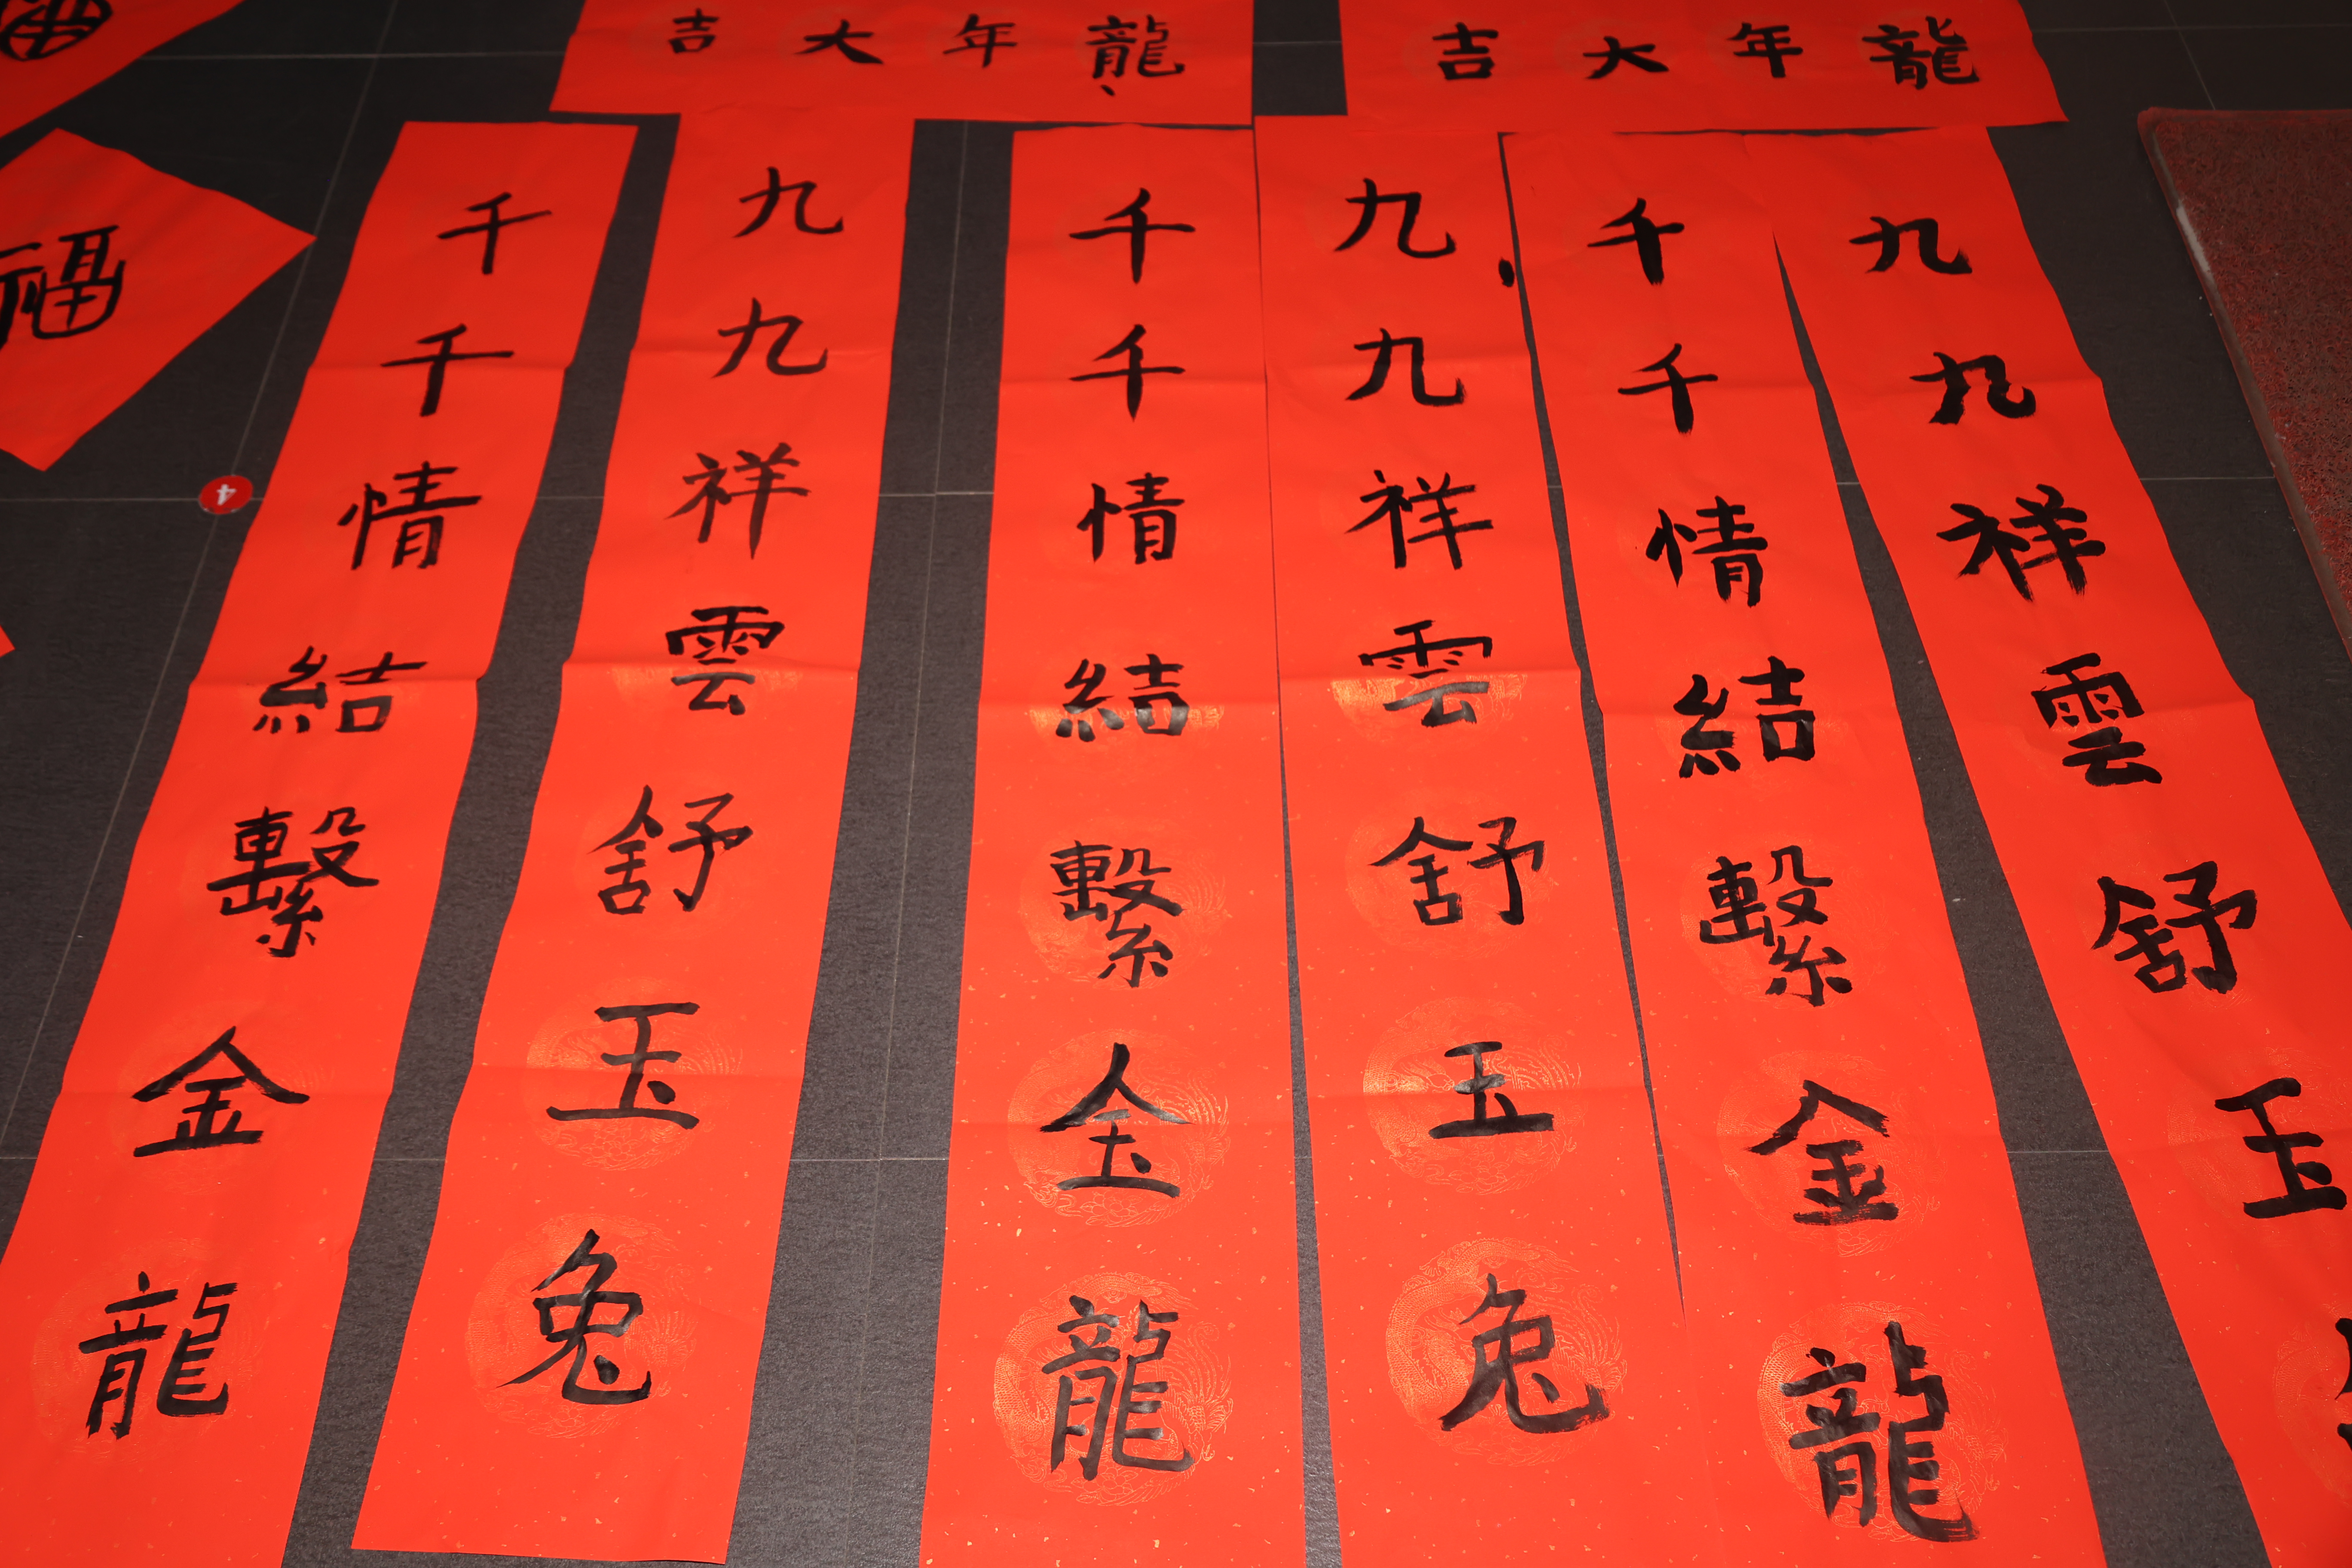 龍年大吉
龍年大吉
九九祥雲舒玉
千千情結繫金龍
九九祥雲舒玉兔
千千情結繫金龍
九九祥雲舒玉兔
千千情結繫金龍
福
4